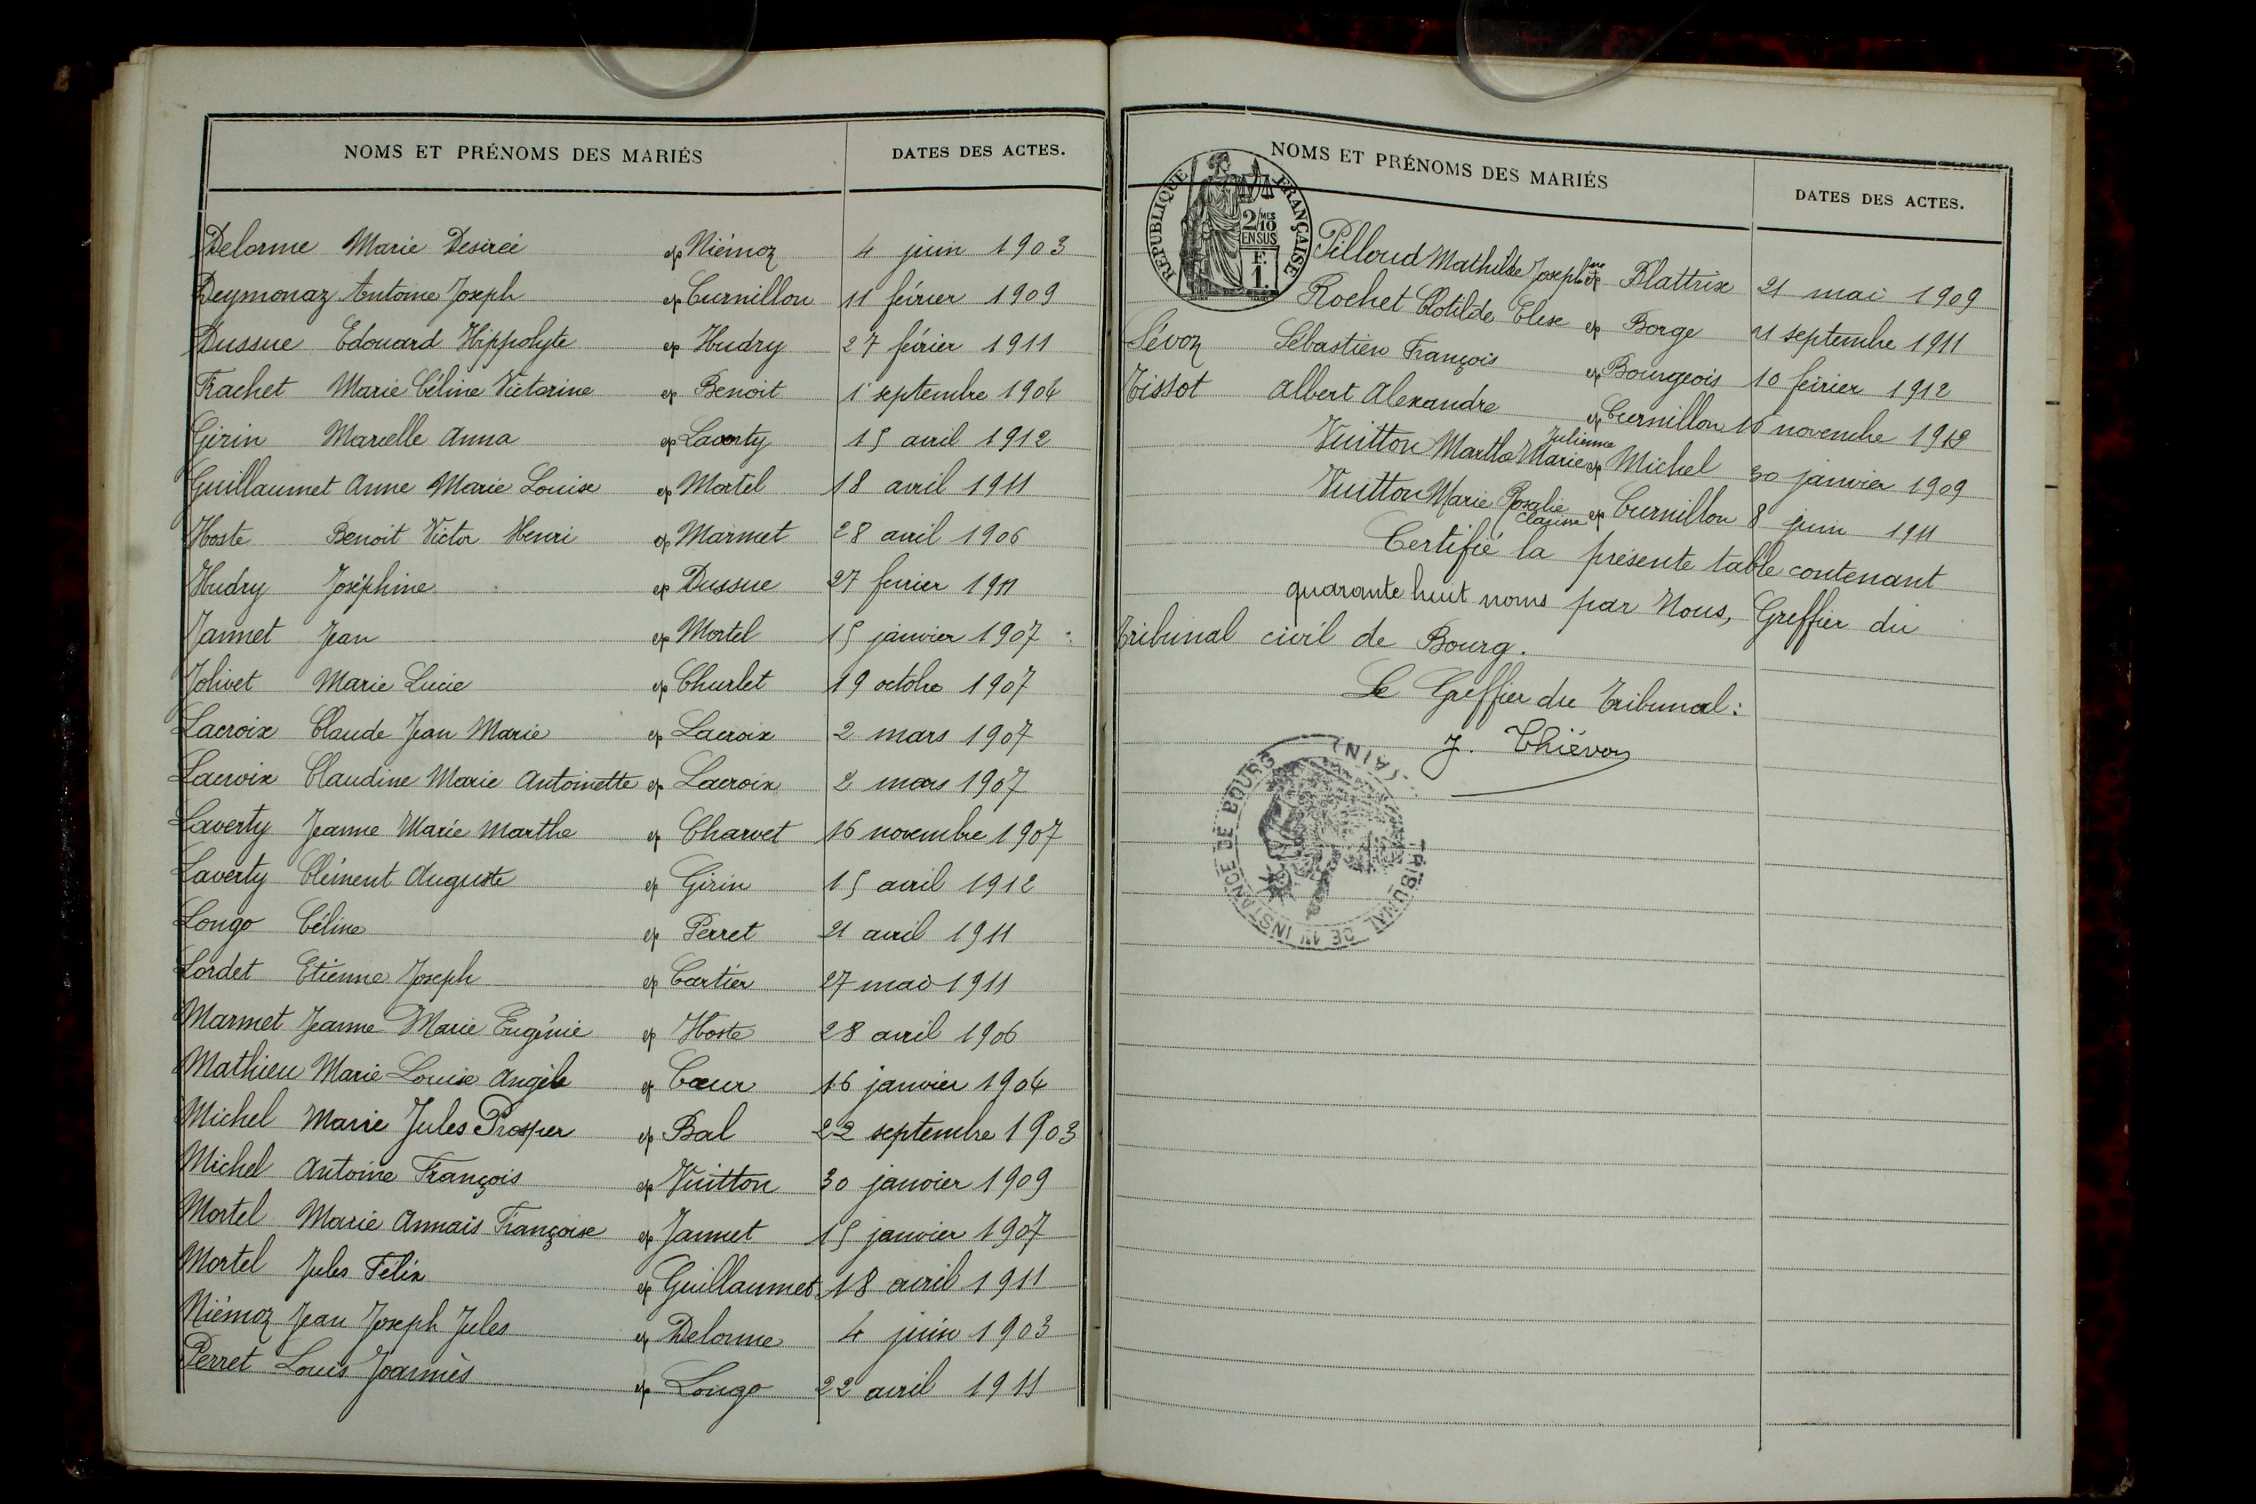 NOMS ET PRÉNOMS DES MARIÉS DATES DES ACTES.
Delorme Marie Desirée ep Niémoz 4 juin 1903
Deymonaz Antoine Joseph ep Curnillon 11 février 1909
Dussue Edouard Hippolyte ep Hudry 27 février 1911
Frachet Marie Céline Victorine ep Benoit 1 septembre 1904
Girin Marielle Anna ep Laverty 15 avril 1912
Guillaumet Anne Marie Louise ep Mortel 18 avril 1911
Hoste Benoit Victor Henri ep Marmet 28 avril 1906
Hudry Joséphine ep Dussue 27 fevrier 1911
Jannet Jean ep Mortel 15 janvier 1907
Jolivet Marie Lucie ep Churlet 19 octobre 1907
Lacroix Claude Jean Marie ep Lacroix 2 mars 1907
Lacroix Claudine Marie Antoinette ep Lacroix 2 mars 1907
Laverty Jeanne Marie Marthe ep Charvet 16 novembre 1907
Laverty Clément Auguste ep Girin 15 avril 1912
Longo Céline ep Perret 21 avril 1911
Lordet Etienne Joseph ep Cartier 27 mai 1911
Marmet Jeanne Marie Eugénie ep Hoste 28 avril 1906
Mathieu Marie Louise Angèle ep Cœur 16 janvier 1904
Michel Marie Jules Prosper ep Bal 22 septembre 1903
Michel Antoine François ep Vuitton 30 janvier 1909
Mortel Marie Annaïs Françoise ep Jannet 15 janvier 1907
Mortel Jules Félix ep Guillaumet 18 avril 1911
Niémoz Jean Joseph Jules ep Delorme 4 juin 1903
Perret Louis Joannès ep Longo 22 avril 1911
NOMS ET PRÉNOMS DES MARIÉS DATES DES ACTES.
RÉPUBLIQUE FRANÇAISE
2/10 MES
EN SUS
F.
1.
Pilloud Mathilde Josephine ep Blattrix 21 mai 1909
Rochet Clotilde Elise ep Borge 21 septembre 1911
Sévoz Sébastien François ep Bourgeois 10 février 1912
Tissot Albert Alexandre ep Curnillon 16 novembre 1912
Vuitton Marthe Marie Julienne ep Michel 30 janvier 1909
Vuitton Marie Rosalie Clarisse ep Curnillon 8 juin 1911
Certifié la présente table contenant
quarante huit noms par Nous, Greffier du
Tribunal civil de Bourg.
Le Greffier du Tribunal:
J. Thiévoz
TRIBUNAL DE 1re INSTANCE DE BOURG (AIN)